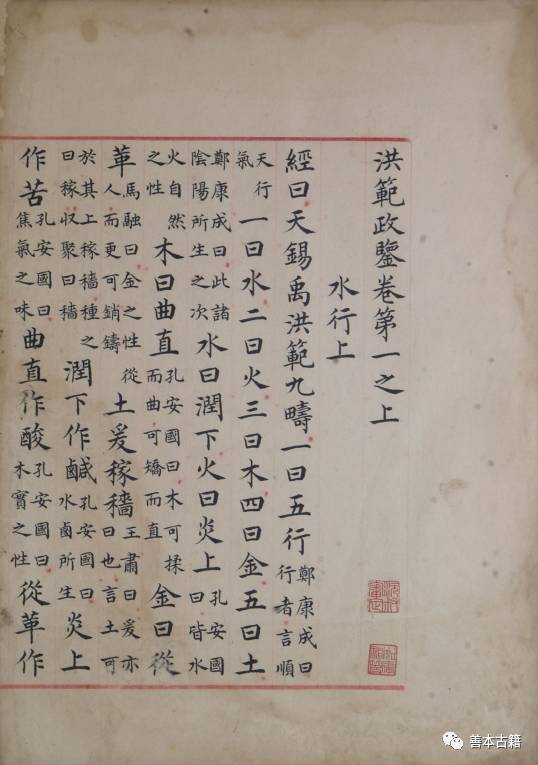 洪範政鑒卷第一之上
水行上
經曰天錫禹洪範九疇一曰五行鄭康成曰行者言順
天行氣一曰水二曰火三曰木四曰金五曰土
鄭康成曰此諸陰陽所生之次水曰潤下火曰炎上孔安國曰皆水
火自然之性木曰曲直孔安國曰木可揉而曲可矯而直金曰從
革馬融曰金之性從人而更可銷鑄土爰稼穡王肅曰爰亦曰也言土可
於其上稼穡種之曰稼収聚曰穡潤下作鹹孔安國曰水鹵所生炎上
作苦孔安國曰焦氣之味曲直作酸孔安國曰木實之性從革作
善本古籍